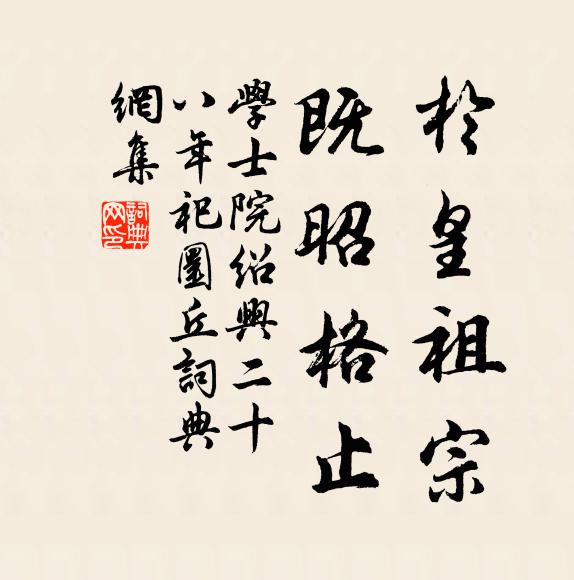 於皇祖宗
既昭格止
學士院紹興二十
八年祀圜丘詞典
網集
詞典
网印